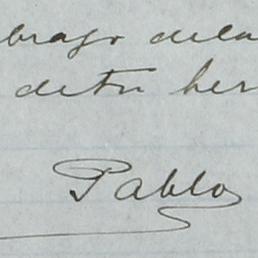 brazo dela
de tu her
Pablo